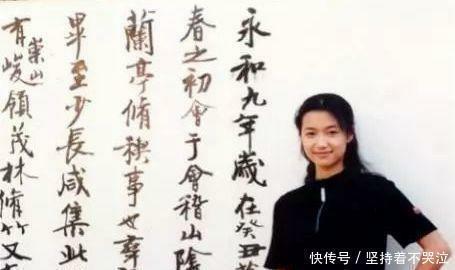 永和九年歲在癸丑
春之初會于會稽山陰
蘭亭脩稧事也羣
畢至少長咸集此
有崇山峻領茂林脩竹又
快传号 / 坚持着不哭泣